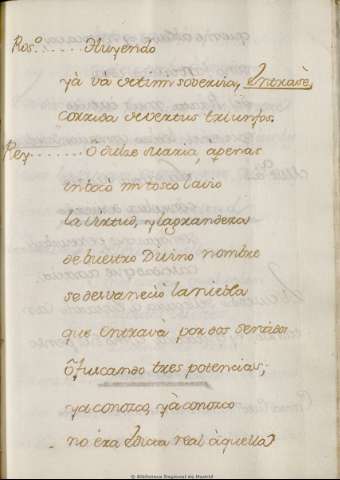 Ros.º ...... Huyendo
yà và de ti mi sobervia, Entrase,
corrida de ver tus triunfos.
Rey ........ O dulze Maria, apenas
invocò mi tosco lavio
la virtud, y la grandeza
de buestro Divino nombre
se desvaneciò la niebla
que entravà por dos sentidos
ofuscando tres potencias;
ya conozco, yà conozco
no éra Dicia real aquella
© Biblioteca Regional de Madrid